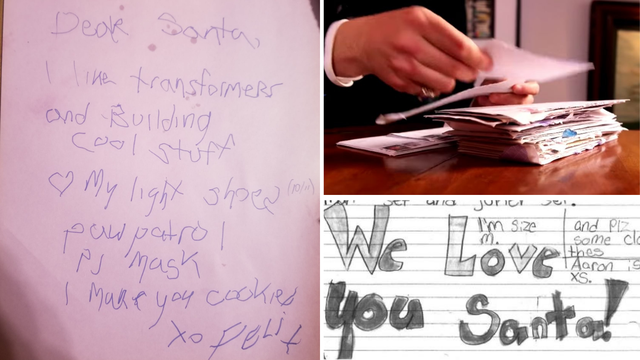 Dear Santa,
I like transformers
and Building
cool stuff
♡ My light shoes
pawpatrol
PJ Mask
I Make you cookies
xo
set and junior set.
We Love
I'm size
m.
and Plz
some clo
thes
Aaron is
XS.
you Santa!